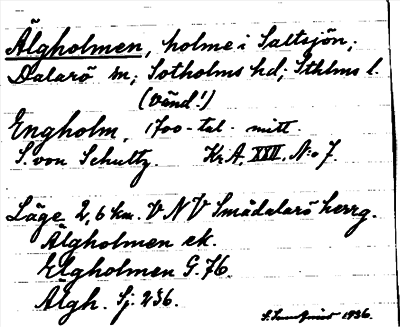 Älgholmen, holme i Saltsjön;
Dalarö sn; Sotholms hd; Sthlms l.
(Vänd!)
Engholm, 1700-tal. mitt.
S. von Schultz. Kr.A. XXII. N:o 7.
Läge 2,6 km. VNV Smådalarö herrg.
Älgholmen ek.
Elgholmen G. 76.
Älgh. Sj. 236.
1936.